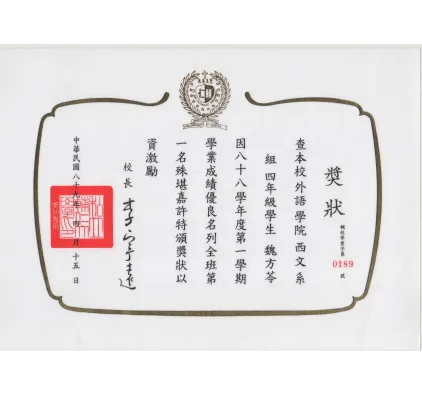 獎狀
輔校學獎字第 0189 號
查本校外語學院 西文 系
組 四年級學生 魏方苓
因八十八學年度第一學期
學業成績優良名列全班第
一名殊堪嘉許特頒獎狀以
資激勵
校長 李寧遠
中華民國八十九年四月十五日